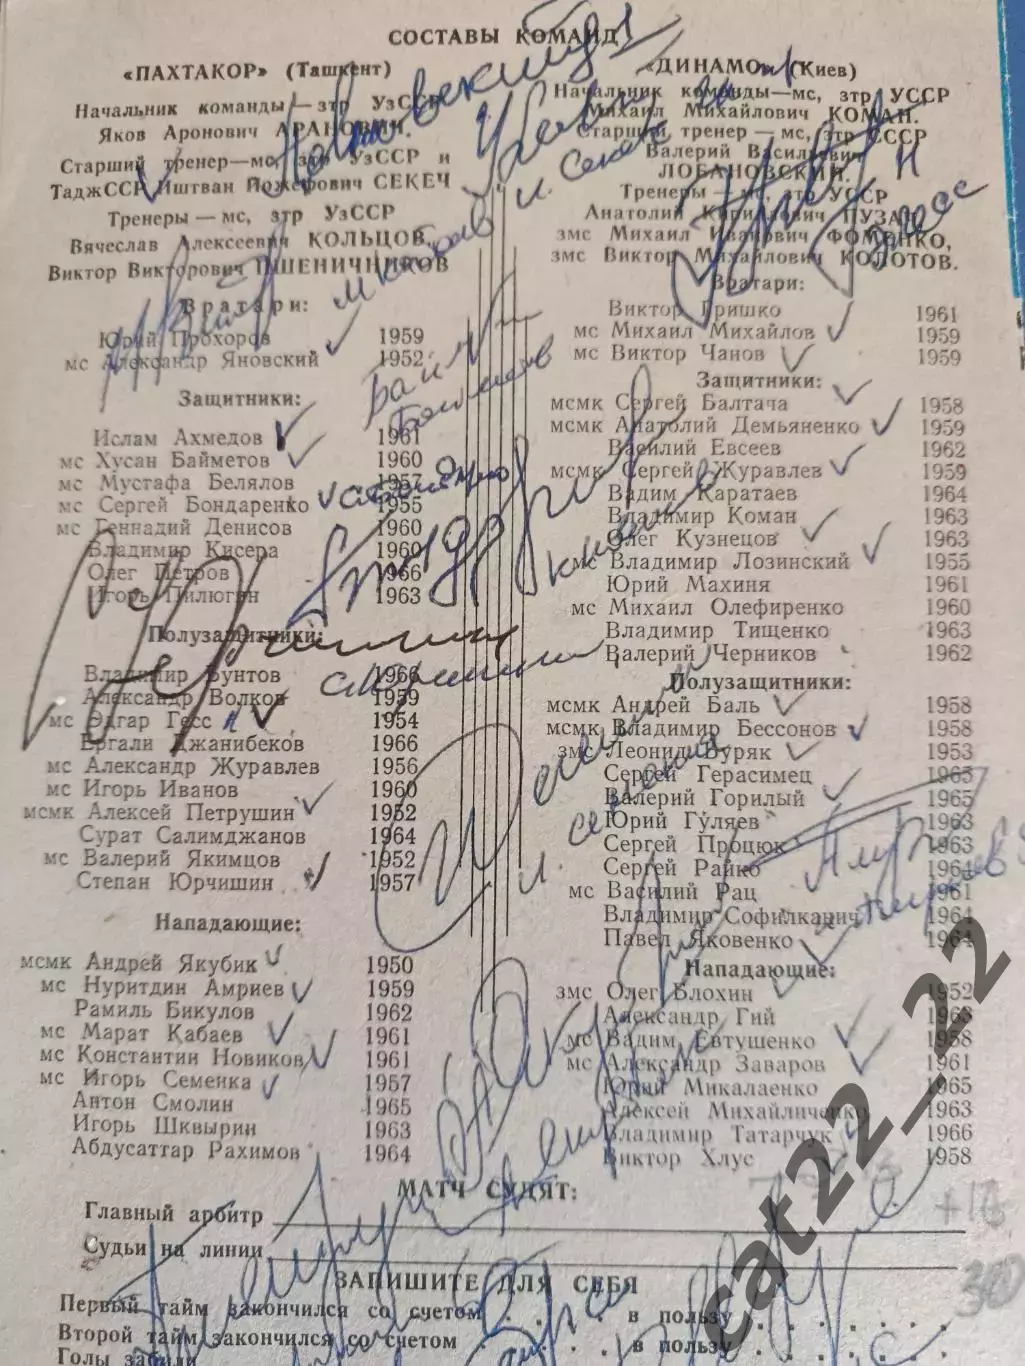 СОСТАВЫ КОМАНД
«ПАХТАКОР» (Ташкент)
Начальник команды—зтр УзССР
Яков Аронович АРАНОВИЧ.
Старший тренер—мс, зтр УзССР и
ТаджССР Иштван Йожефович СЕКЕЧ
Тренеры—мс, зтр УзССР
Вячеслав Алексеевич КОЛЬЦОВ,
Виктор Викторович ПШЕНИЧНИКОВ
Вратари:
Юрий Прохоров 1959
мс Александр Яновский 1952
Защитники:
Ислам Ахмедов 1961
мс Хусан Байметов 1960
мс Мустафа Белялов 1957
мс Сергей Бондаренко 1955
мс Геннадий Денисов 1960
Владимир Кисера 1960
Олег Петров 1966
Игорь Пилюгин 1963
Полузащитники:
Владимир Бунтов 1966
Александр Волков 1959
мс Эдгар Гесс 1954
Ергали Джанибеков 1966
мс Александр Журавлев 1956
мс Игорь Иванов 1960
мсмк Алексей Петрушин 1952
Сурат Салимджанов 1964
мс Валерий Якимцов 1952
Степан Юрчишин 1957
Нападающие:
мсмк Андрей Якубик 1950
мс Нуритдин Амриев 1959
Рамиль Бикулов 1962
мс Марат Кабаев 1961
мс Константин Новиков 1961
мс Игорь Семенка 1957
Антон Смолин 1965
Игорь Шквырин 1963
Абдусаттар Рахимов 1964
«ДИНАМО» (Киев)
Начальник команды—мс, зтр УССР
Михаил Михайлович КОМАН.
Старший тренер—мс, зтр СССР
Валерий Васильевич
ЛОБАНОВСКИЙ.
Тренеры—мс, зтр УССР
Анатолий Кириллович ПУЗАЧ,
змс Михаил Иванович ФОМЕНКО,
змс Виктор Михайлович КОЛОТОВ.
Вратари:
Виктор Гришко 1961
мс Михаил Михайлов 1959
мс Виктор Чанов 1959
Защитники:
мсмк Сергей Балтача 1958
мсмк Анатолий Демьяненко 1959
Василий Евсеев 1962
мсмк Сергей Журавлев 1959
Вадим Каратаев 1964
Владимир Коман 1963
Олег Кузнецов 1963
мс Владимир Лозинский 1955
Юрий Махиня 1961
мс Михаил Олефиренко 1960
Владимир Тищенко 1963
Валерий Черников 1962
Полузащитники:
мсмк Андрей Баль 1958
мсмк Владимир Бессонов 1958
змс Леонид Буряк 1953
Сергей Герасимец 1965
Валерий Горилый 1965
Юрий Гуляев 1963
Сергей Процюк 1963
Сергей Райко 1964
мс Василий Рац 1961
Владимир Софилканич 1964
Павел Яковенко 1964
Нападающие:
змс Олег Блохин 1952
Александр Гий 1963
мс Вадим Евтушенко 1958
мс Александр Заваров 1961
Юрий Микалаенко 1965
Алексей Михайличенко 1963
Владимир Татарчук 1966
Виктор Хлус 1958
МАТЧ СУДЯТ:
Главный арбитр
Судьи на линии
ЗАПИШИТЕ ДЛЯ СЕБЯ
Первый тайм закончился со счетом . . . . в пользу . . . . . .
Второй тайм закончился со счетом . . . . в пользу . . . . . .
Голы забили
и. Секеч
Гесс
300
cat22_22